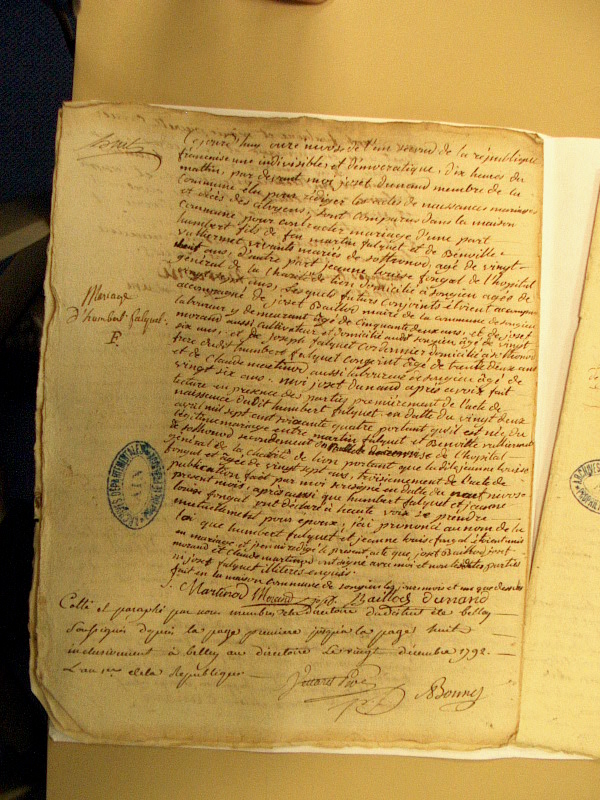 huit
Mariage
d'humbert falquet
F.
Ce jourd'huy onze nivose de l'an second de la république
françoise une indivisible et démocratique, dix heures du
matin, par devant moi josef dunand membre de la
commune élu pour rédiger les actes de naissances mariages
et décès des citoyens, sont comparus dans la maison
commune pour contracter mariage d'une part
humbert fils de feu martin falquet et de Benoite
vuthermet vivants mariés de sothonod, agé de vingt-
ans, d'autre part jeanne louise fongal de l'hopital
général de la charité de lion domicilié à songieu agée de
ans, lesquels futurs conjoints étoient accompa
accompagné de josef Bailloz maire de la commune de songieu
laboureur y demeurant âgé de cinquante deux ans, et de josef
morand aussi cultivateur et domicilié audit songieu âgé de vingt
six ans, et de joseph falquet cordonnier domicilié à sothonod
frere dudit humbert falquet conjoint âgé de trente deux ans
et de Claude martinod aussi laboureur de songieu âgé de
vingt six ans. moi josef dunand après avoir fait
lecture en presence des parties premièrement de l'acte de
naissance dudit humbert falquet en datte du vingt deux
avril mil sept cent soixante quatre portant qu'il est né du
légitime mariage entre martin falquet et Benoite vuthermet
de sothonod secondement de l'hopital
général de la charité de lion portant que la dite jeanne louise
fongal est agée de vingt sept ans, troisiemement de l'acte de
publication fait par moi soussigné en datte du neuf nivose
present mois, après aussi que humbert falquet et jeanne
louise fongal ont déclaré à haute voix se prendre
mutuellement pour epoux, j'ai prononcé au nom de la
loi que humbert falquet et jeanne louise fongal étoient unis
en mariage et j'en ai rédigé le present acte que josef Bailloz josef
morand et claude martinod ont signé avec moi et non les dittes parties
ni josef falquet illitérés enquis.
fait en la maison commune de songieu les jour mois et an que dessus
C. Martinod Morand Bailloz Dunand
Cotté et paraphé par nous membre du directoire du district de belley
soussignés depuis la page premiere jusqu'à la page huit
inclusivement à belley au directoire le vingt décembre 1792.
L'an 1er de la République
Bonnet
ARCHIVES DÉPARTEMENTALES
AIN
ARCHIVES